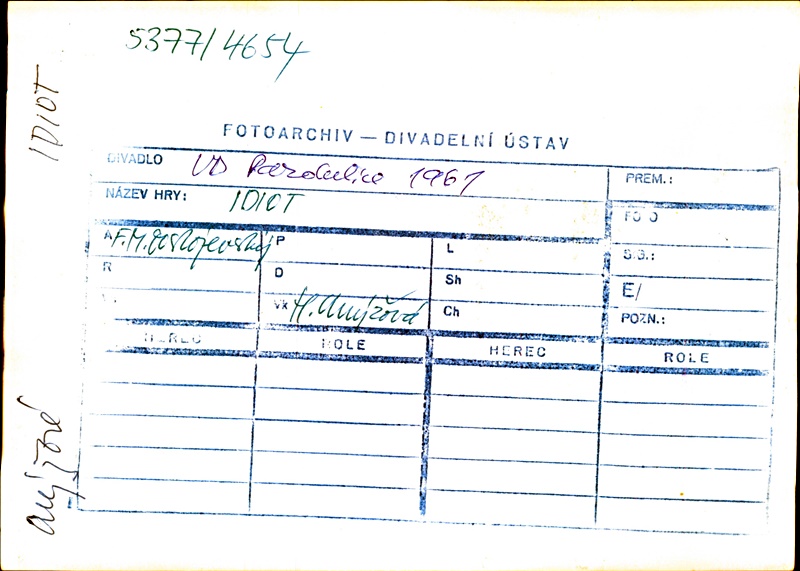 5377/4654
IDIOT
FOTOARCHIV — DIVADELNÍ ÚSTAV
DIVADLO VD Pardubice 1961
PREM.:
NÁZEV HRY: IDIOT
FOTO
A F.M.Dostojevský P L S.B.:
R D Sh E/
Vk H. Anýžová Ch POZN.:
HEREC ROLE HEREC ROLE
Anýžová